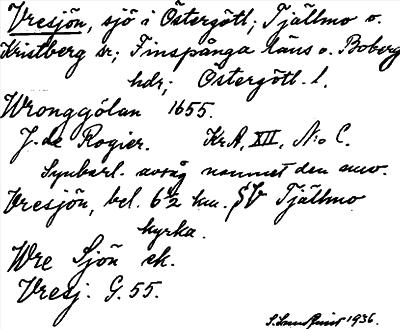 Vresjön, sjö i Östergötl; Tjällmo o.
Kristberg sr; Finspånga läns o. Boberg
hdr; Östergötl. l.
Wronggölan 1655.
J. de Rogier. KrA, XII, N:o C.
Synbarl. avsåg namnet den nuv.
Vresjön, bel. 6 1/2 km. SV Tjällmo
kyrka.
Wre Sjön ek.
Vresj. G. 55.
1936.